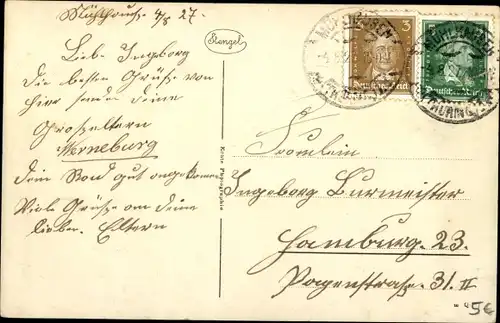 Mühlhaus. 4/8 27.
Lieb. Ingeborg
Die besten Grüße von
hier senden deine
Großeltern
Werneburg
dein Brod gut angekommen
Viele Grüße an deine
lieben Eltern
Stengel
Echte Photographie
3
Deutsches Reich
Deutsches Reich
Fräulein
Ingeborg Burmeister
Hamburg. 23.
Papenstraße. 31. II
5€